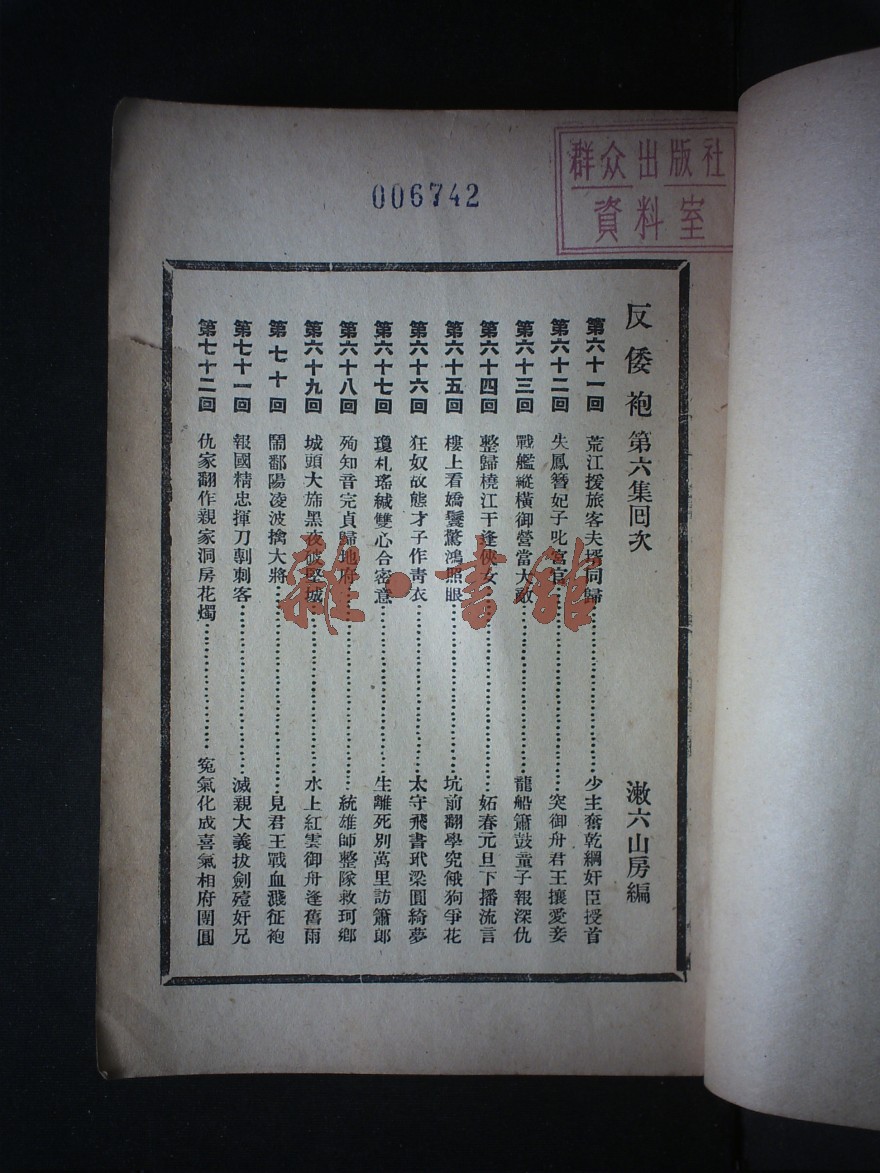 006742
群众出版社
資料室
反倭袍第六集回次 漱六山房編
第六十一回 荒江援旅客夫壻同歸 少主奮乾綱奸臣授首
第六十二回 失鳳簪妃子叱宮官 突御舟君王攘愛妾
第六十三回 戰艦縱橫御營當大敵 龍船簫鼓童子報深仇
第六十四回 整歸橈江干逢俠女 妬春元旦下播流言
第六十五回 樓上看嬌鬟驚鴻照眼 坑前翻學究餓狗爭花
第六十六回 狂奴故態才子作青衣 太守飛書玳梁圓綺夢
第六十七回 瓊札瑤緘雙心合密意 生離死別萬里訪簫郎
第六十八回 殉知音完貞歸地府 統雄師整隊救珂鄉
第六十九回 城頭大旆黑夜破堅城 水上紅雲御舟逢舊雨
第七十回 鬧鄱陽凌波擒大將 見君王戰血濺征袍
第七十一回 報國精忠揮刀剸刺客 滅親大義拔劍殪奸兄
第七十二回 仇家翻作親家洞房花燭 冤氣化成喜氣相府團圓
雜·書館